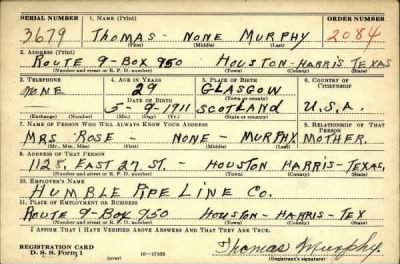 SERIAL NUMBER 1. NAME (Print) ORDER NUMBER
3679 THOMAS - NONE MURPHY 2084
(First) (Middle) (Last)
2. ADDRESS (Print)
ROUTE 9-BOX 950 HOUSTON-HARRIS TEXAS
(Number and street or R. F. D. number) (Town) (County) (State)
3. TELEPHONE 4. AGE IN YEARS 5. PLACE OF BIRTH 6. COUNTRY OF CITIZENSHIP
NONE 29 GLASGOW
DATE OF BIRTH (Town or county)
5-9-1911 SCOTLAND U.S.A.
(Exchange) (Number) (Mo.) (Day) (Yr.) (State or country)
7. NAME OF PERSON WHO WILL ALWAYS KNOW YOUR ADDRESS 8. RELATIONSHIP OF THAT PERSON
MRS ROSE - NONE - MURPHY MOTHER.
(Mr., Mrs., Miss) (First) (Middle) (Last)
9. ADDRESS OF THAT PERSON
1125, EAST 27 ST. - HOUSTON HARRIS-TEXAS,
(Number and street or R. F. D. number) (Town) (County) (State)
10. EMPLOYER'S NAME
HUMBLE PIPE LINE CO.
11. PLACE OF EMPLOYMENT OR BUSINESS
ROUTE 9-BOX 950 HOUSTON-HARRIS-TEX
(Number and street or R. F. D. number) (Town) (County) (State)
I AFFIRM THAT I HAVE VERIFIED ABOVE ANSWERS AND THAT THEY ARE TRUE.
REGISTRATION CARD
D. S. S. Form 1 (over) Thomas Murphy
(Registrant's signature)